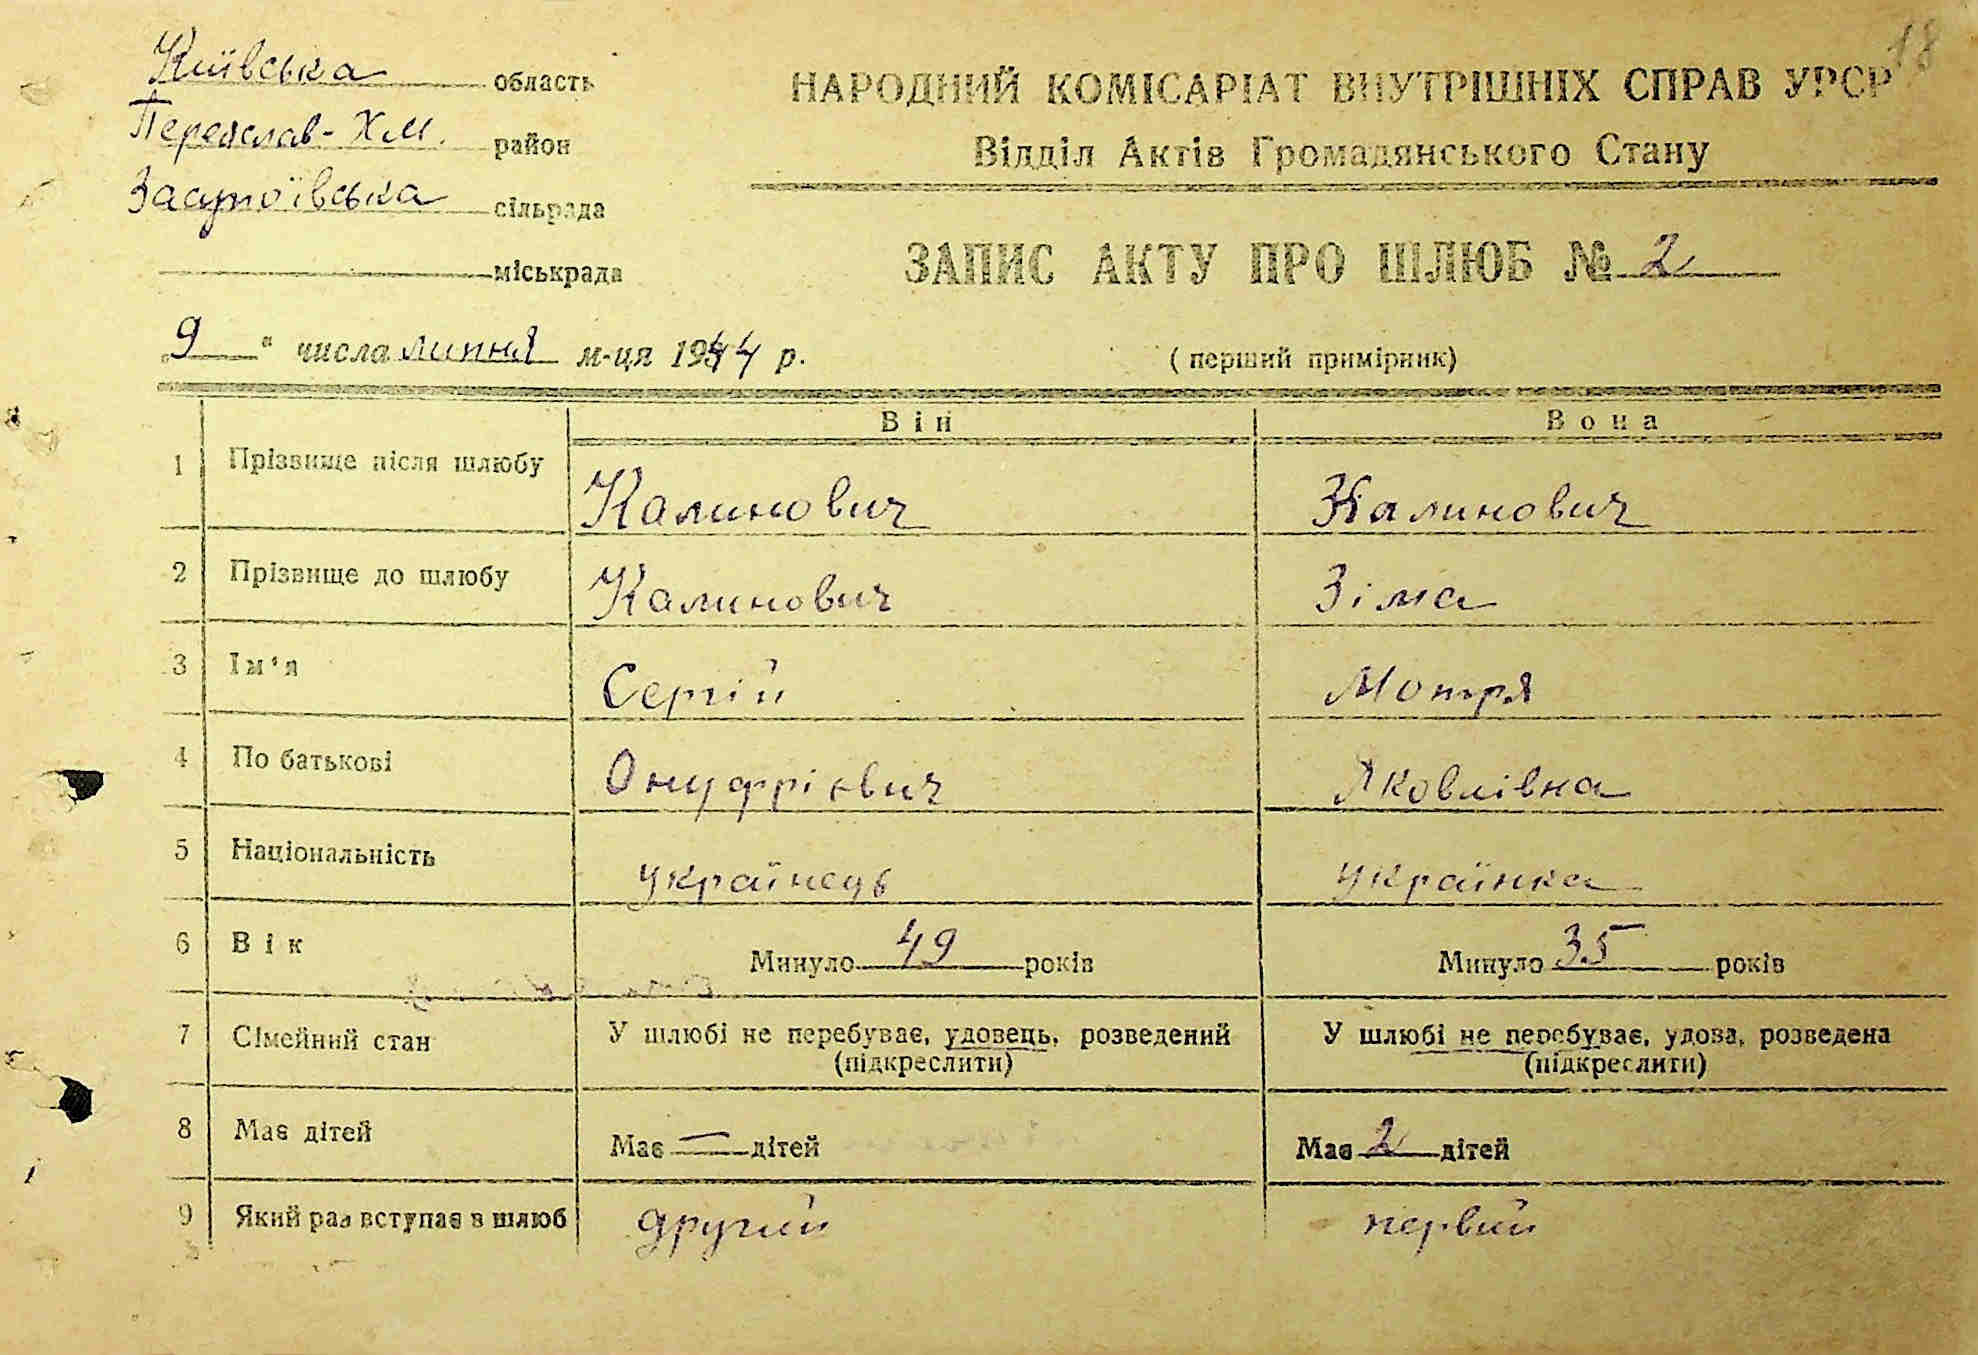 18
Київська область
Переяслав-Хм. район
сільрада
міськрада
НАРОДНИЙ КОМІСАРІАТ ВНУТРІШНІХ СПРАВ УРСР
Відділ Актів Громадянського Стану
ЗАПИС АКТУ ПРО ШЛЮБ № 2
9 " числа липня м-ця 1944 р.
(перший примірник)
Він Вона
1 Прізвище після шлюбу Калинович Калинович
2 Прізвище до шлюбу Калинович Зіма
3 Ім'я Сергій Мотря
4 По батькові Онуфрієвич Яковлівна
5 Національність українець українка
6 Вік Минуло 49 років Минуло 35 років
7 Сімейний стан У шлюбі не перебуває, удовець, розведений У шлюбі не перебуває, удова, розведена
(підкреслити) (підкреслити)
8 Має дітей Має — дітей Має 2 дітей
9 Який раз вступає в шлюб другий первий